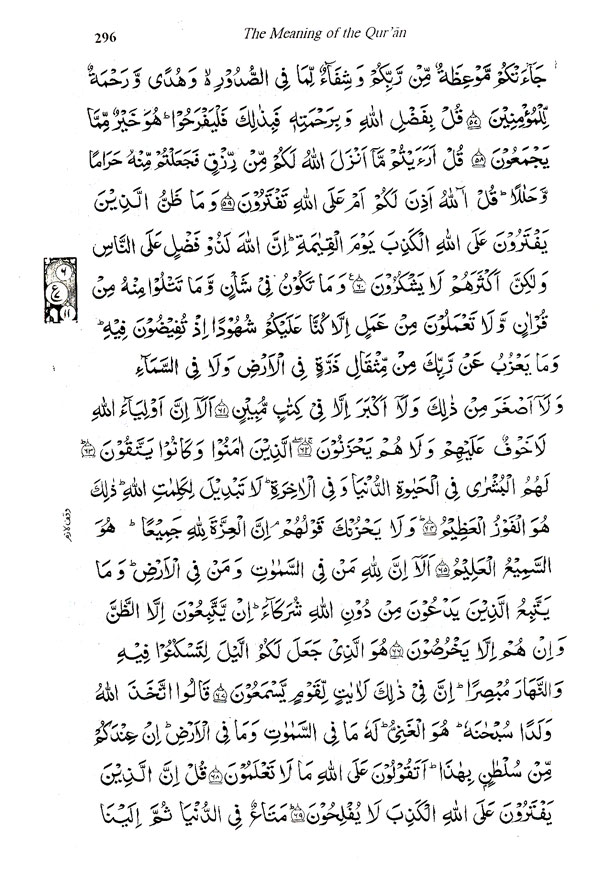 296
The Meaning of the Qur'ān
جَآءَتْكُمْ مَّوْعِظَةٌ مِّنْ رَّبِّكُمْ وَ شِفَآءٌ لِّمَا فِى الصُّدُوْرِ ۙ وَ هُدًى وَّ رَحْمَةٌ
لِّلْمُؤْمِنِيْنَ ۝۵۷ قُلْ بِفَضْلِ اللهِ وَ بِرَحْمَتِهٖ فَبِذٰلِكَ فَلْيَفْرَحُوْا ؕ هُوَ خَيْرٌ مِّمَّا
يَجْمَعُوْنَ ۝۵۸ قُلْ اَرَءَيْتُمْ مَّآ اَنْزَلَ اللهُ لَكُمْ مِّنْ رِّزْقٍ فَجَعَلْتُمْ مِّنْهُ حَرَامًا
وَّ حَلٰلًا ؕ قُلْ آٰللهُ اَذِنَ لَكُمْ اَمْ عَلَى اللهِ تَفْتَرُوْنَ ۝۵۹ وَ مَا ظَنُّ الَّذِيْنَ
يَفْتَرُوْنَ عَلَى اللهِ الْكَذِبَ يَوْمَ الْقِيٰمَةِ ؕ اِنَّ اللهَ لَذُوْ فَضْلٍ عَلَى النَّاسِ
وَلٰكِنَّ اَكْثَرَهُمْ لَا يَشْكُرُوْنَ ۝۶۰ وَ مَا تَكُوْنُ فِىْ شَاْنٍ وَّ مَا تَتْلُوْا مِنْهُ مِنْ
قُرْاٰنٍ وَّ لَا تَعْمَلُوْنَ مِنْ عَمَلٍ اِلَّا كُنَّا عَلَيْكُمْ شُهُوْدًا اِذْ تُفِيْضُوْنَ فِيْهِ ؕ
وَ مَا يَعْزُبُ عَنْ رَّبِّكَ مِنْ مِّثْقَالِ ذَرَّةٍ فِى الْاَرْضِ وَ لَا فِى السَّمَآءِ
وَ لَآ اَصْغَرَ مِنْ ذٰلِكَ وَ لَآ اَكْبَرَ اِلَّا فِىْ كِتٰبٍ مُّبِيْنٍ ۝۶۱ اَلَآ اِنَّ اَوْلِيَآءَ اللهِ
لَا خَوْفٌ عَلَيْهِمْ وَ لَا هُمْ يَحْزَنُوْنَ ۝۶۲ الَّذِيْنَ اٰمَنُوْا وَ كَانُوْا يَتَّقُوْنَ ۝۶۳
لَهُمُ الْبُشْرٰى فِى الْحَيٰوةِ الدُّنْيَا وَ فِى الْاٰخِرَةِ ؕ لَا تَبْدِيْلَ لِكَلِمٰتِ اللهِ ؕ ذٰلِكَ
هُوَ الْفَوْزُ الْعَظِيْمُ ۝۶۴ وَ لَا يَحْزُنْكَ قَوْلُهُمْ ۘ اِنَّ الْعِزَّةَ لِلّٰهِ جَمِيْعًا ؕ هُوَ
السَّمِيْعُ الْعَلِيْمُ ۝۶۵ اَلَآ اِنَّ لِلّٰهِ مَنْ فِى السَّمٰوٰتِ وَ مَنْ فِى الْاَرْضِ ؕ وَ مَا
يَتَّبِعُ الَّذِيْنَ يَدْعُوْنَ مِنْ دُوْنِ اللهِ شُرَكَآءَ ؕ اِنْ يَّتَّبِعُوْنَ اِلَّا الظَّنَّ
وَ اِنْ هُمْ اِلَّا يَخْرُصُوْنَ ۝۶۶ هُوَ الَّذِىْ جَعَلَ لَكُمُ الَّيْلَ لِتَسْكُنُوْا فِيْهِ
وَ النَّهَارَ مُبْصِرًا ؕ اِنَّ فِىْ ذٰلِكَ لَاٰيٰتٍ لِّقَوْمٍ يَّسْمَعُوْنَ ۝۶۷ قَالُوا اتَّخَذَ اللهُ
وَلَدًا سُبْحٰنَهٗ ؕ هُوَ الْغَنِىُّ ؕ لَهٗ مَا فِى السَّمٰوٰتِ وَ مَا فِى الْاَرْضِ ؕ اِنْ عِنْدَكُمْ
مِّنْ سُلْطٰنٍۭ بِهٰذَا ؕ اَتَقُوْلُوْنَ عَلَى اللهِ مَا لَا تَعْلَمُوْنَ ۝۶۸ قُلْ اِنَّ الَّذِيْنَ
يَفْتَرُوْنَ عَلَى اللهِ الْكَذِبَ لَا يُفْلِحُوْنَ ۝۶۹ مَتَاعٌ فِى الدُّنْيَا ثُمَّ اِلَيْنَا
۶
ع
۱۱
وقف لازم